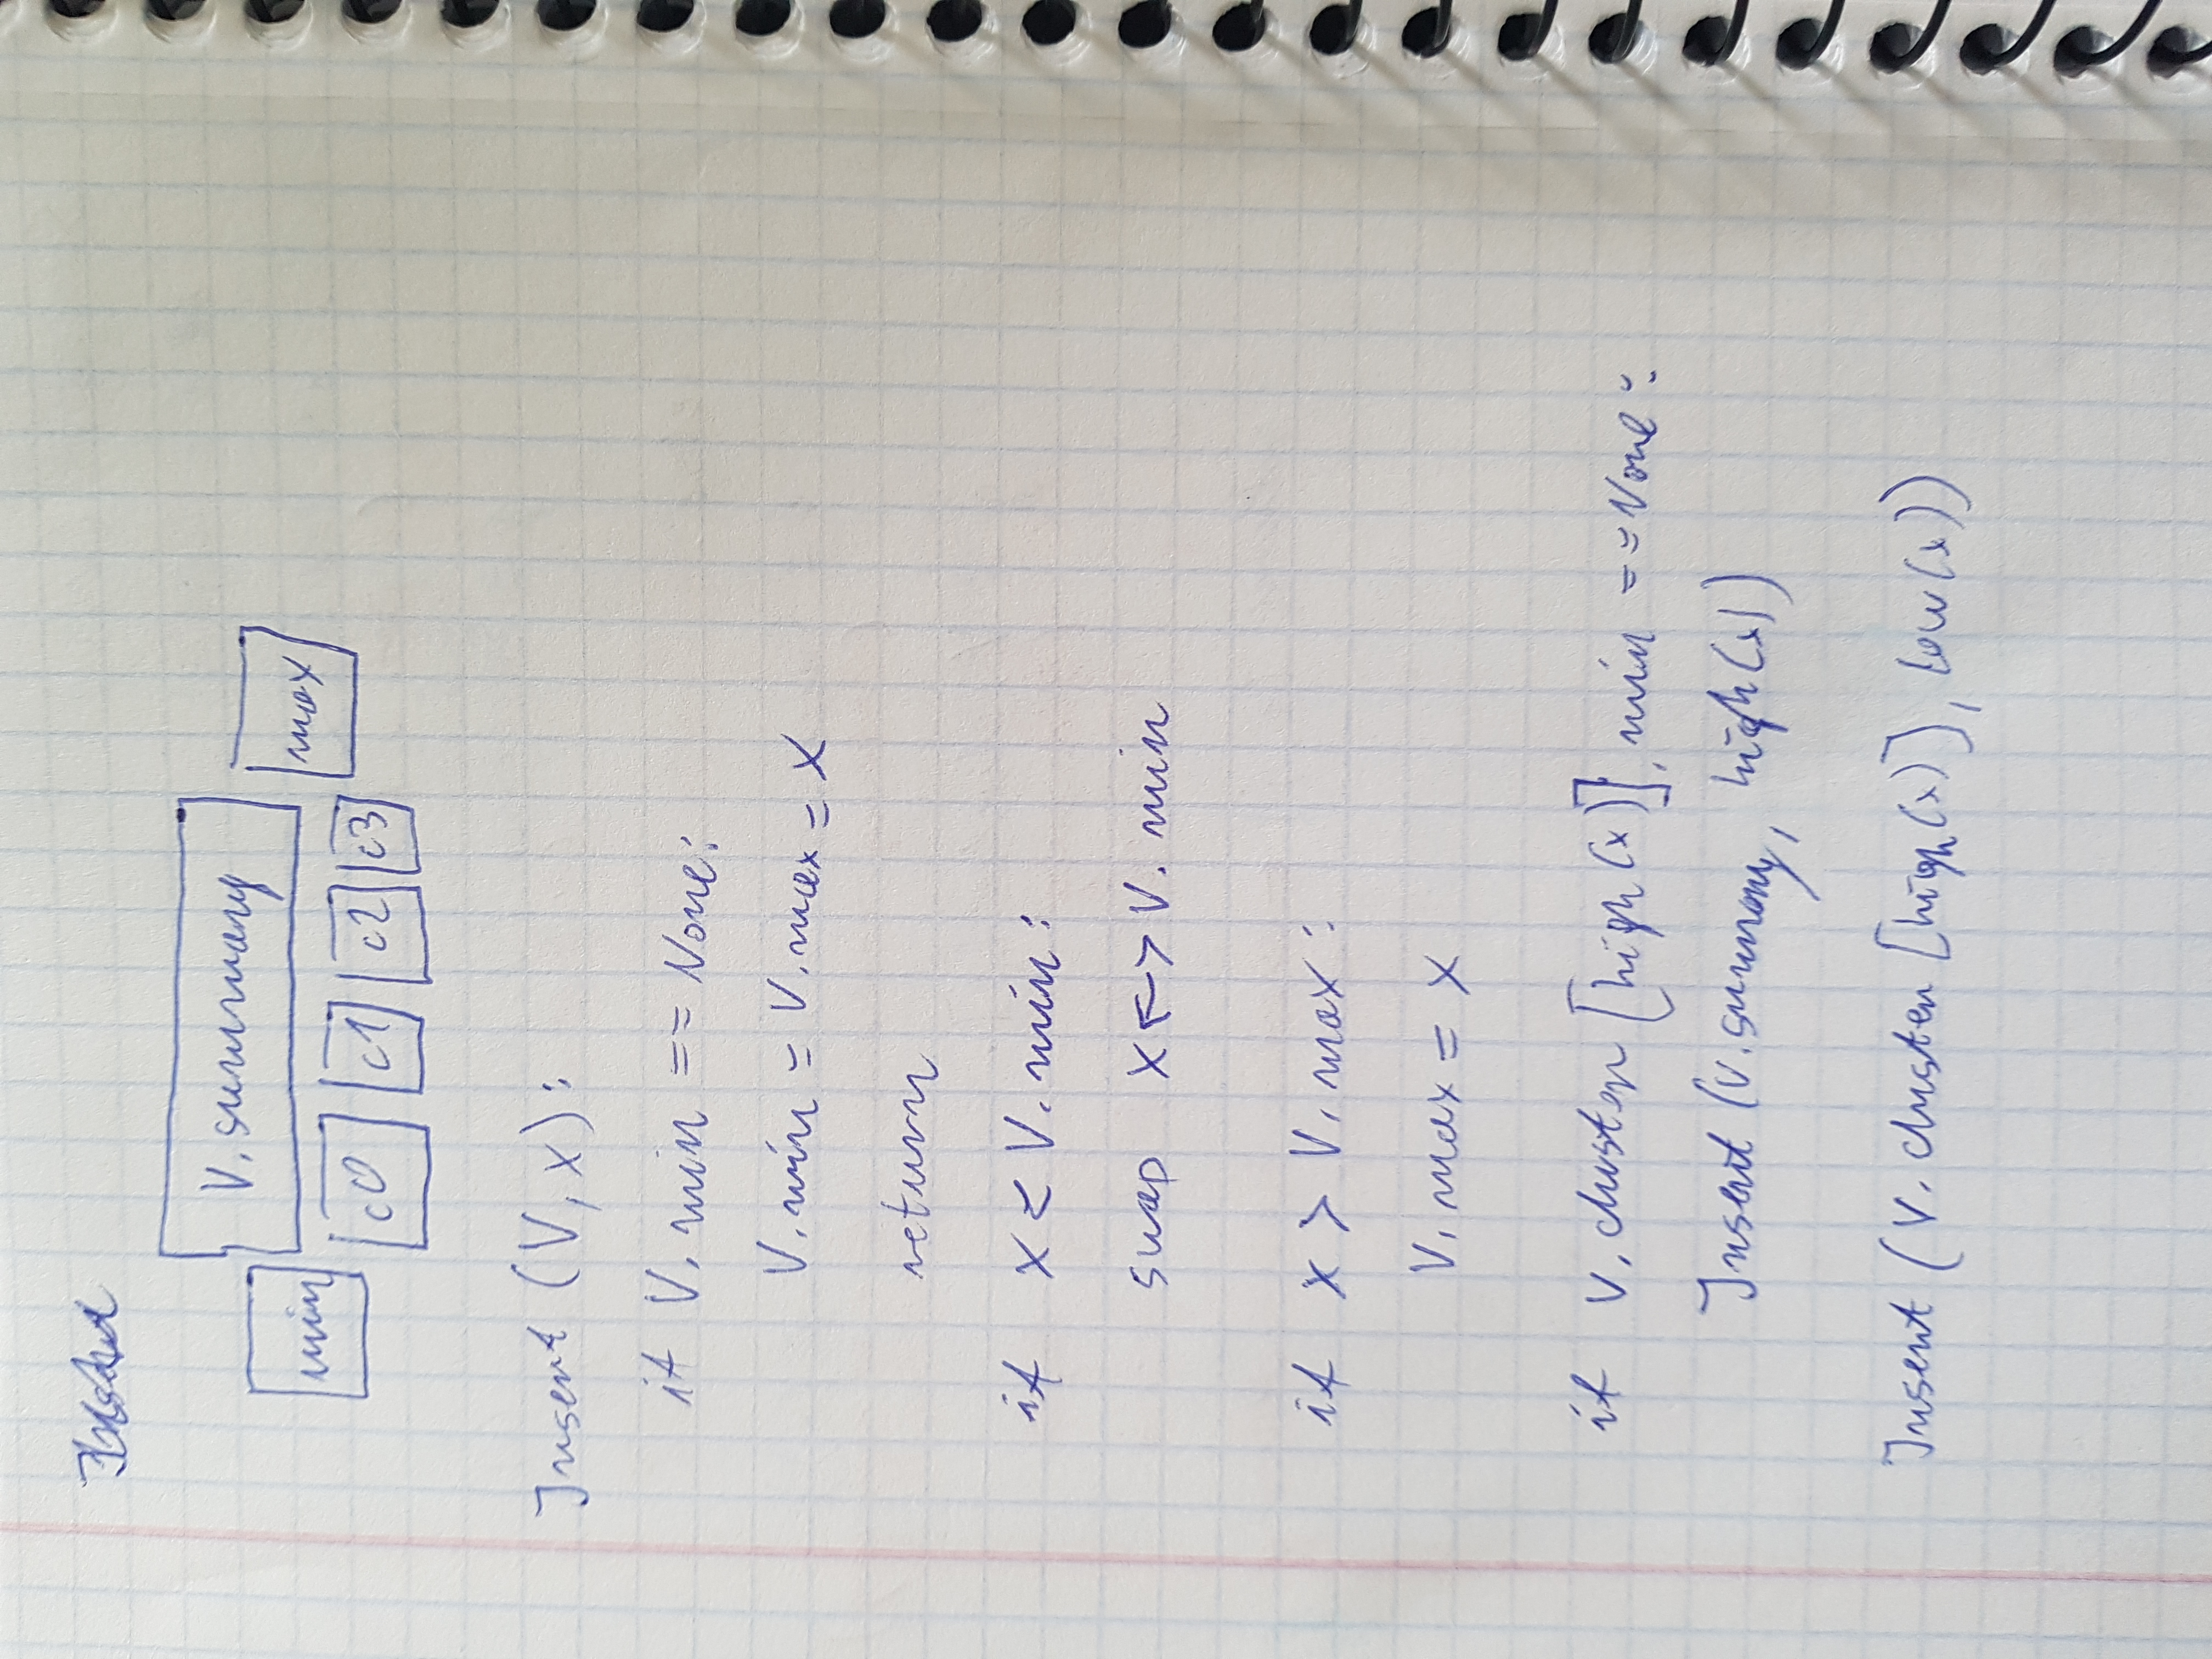 V.summary
min c0 c1 c2 c3 max
Insert (V, x):
if V.min == None:
V.min = V.max = x
return
if x < V.min:
swap x <-> V.min
if x > V.max:
V.max = x
if V.cluster [high(x)].min == None:
Insert (V.summary, high(x))
Insert (V.cluster [high(x)], low(x))